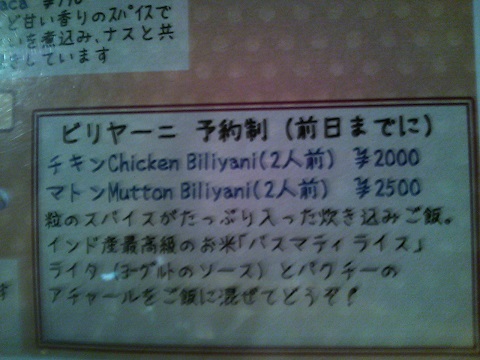 ど甘い香りのスパイスで
いを煮込み、ナスと共
しています
ビリヤーニ 予約制 (前日までに)
チキンChicken Biliyani(2人前) ¥2000
マトンMutton Biliyani(2人前) ¥2500
粒のスパイスがたっぷり入った炊き込みご飯。
インド産最高級のお米「バスマティライス」
ライタ(ヨーグルトのソース)とパクチーの
アチャールをご飯に混ぜてどうぞ!